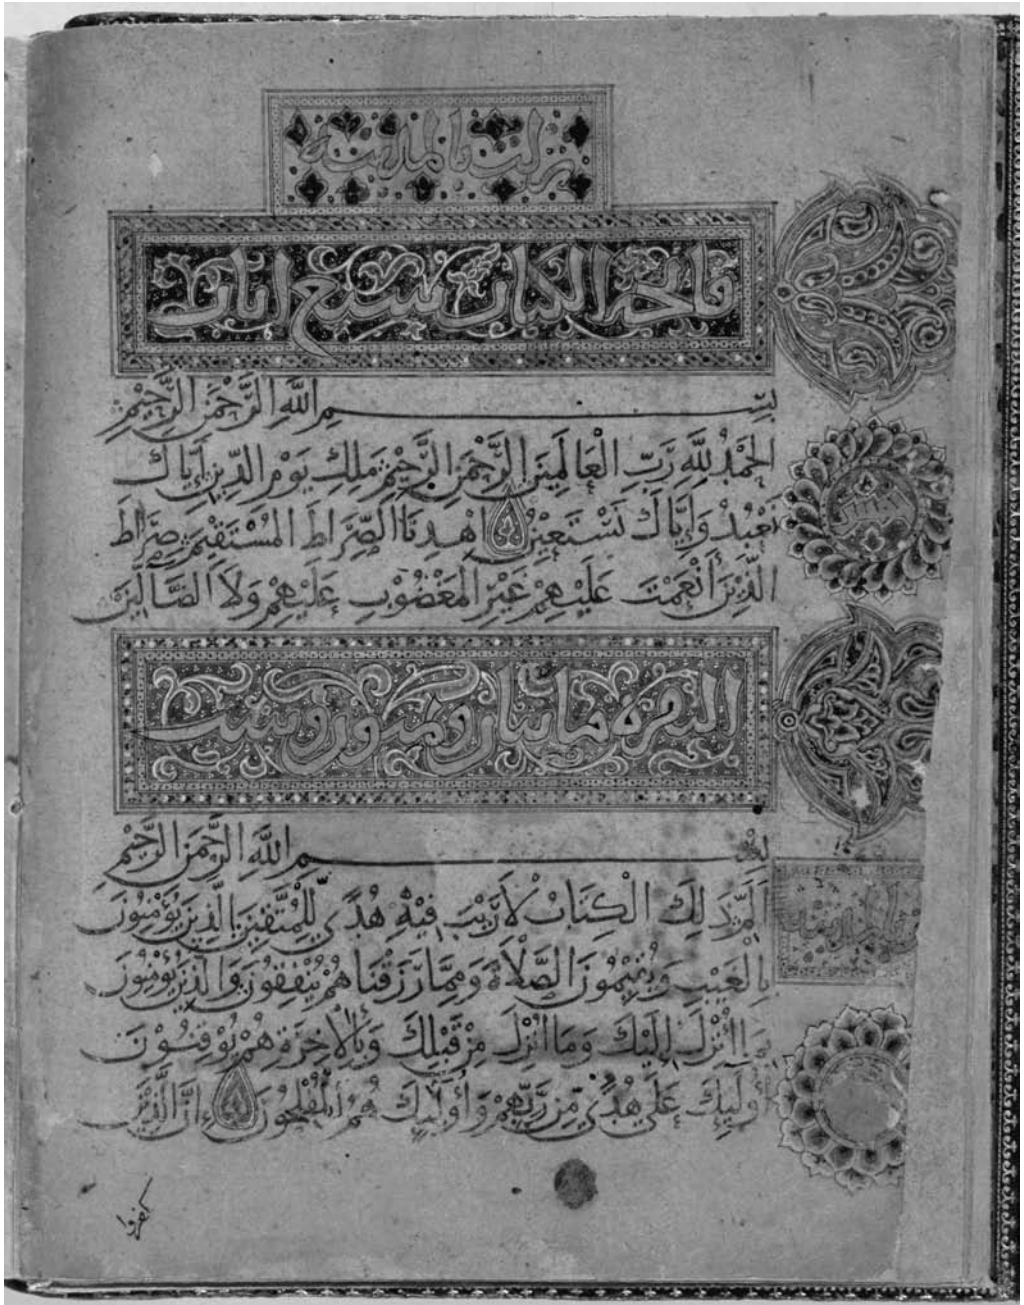 نزلت بالمدينة
فاتحة الكتاب سبع ايات
بِسْمِ اللَّهِ الرَّحْمَنِ الرَّحِيمِ
الْحَمْدُ لِلَّهِ رَبِّ الْعَالَمِينَ الرَّحْمَنِ الرَّحِيمِ مَلِكِ يَوْمِ الدِّينِ إِيَّاكَ
نَعْبُدُ وَإِيَّاكَ نَسْتَعِينُ اهْدِنَا الصِّرَاطَ الْمُسْتَقِيمَ صِرَاطَ
الَّذِينَ أَنْعَمْتَ عَلَيْهِمْ غَيْرِ الْمَغْضُوبِ عَلَيْهِمْ وَلَا الضَّالِّينَ
البقرة مائتان وثمنون وست
بِسْمِ اللَّهِ الرَّحْمَنِ الرَّحِيمِ
الم ذَلِكَ الْكِتَابُ لَا رَيْبَ فِيهِ هُدًى لِلْمُتَّقِينَ الَّذِينَ يُؤْمِنُونَ
بِالْغَيْبِ وَيُقِيمُونَ الصَّلَاةَ وَمِمَّا رَزَقْنَاهُمْ يُنْفِقُونَ وَالَّذِينَ يُؤْمِنُونَ
بِمَا أُنْزِلَ إِلَيْكَ وَمَا أُنْزِلَ مِنْ قَبْلِكَ وَبِالْآخِرَةِ هُمْ يُوقِنُونَ
أُولَئِكَ عَلَى هُدًى مِنْ رَبِّهِمْ وَأُولَئِكَ هُمُ الْمُفْلِحُونَ إِنَّ الَّذِينَ
كفروا